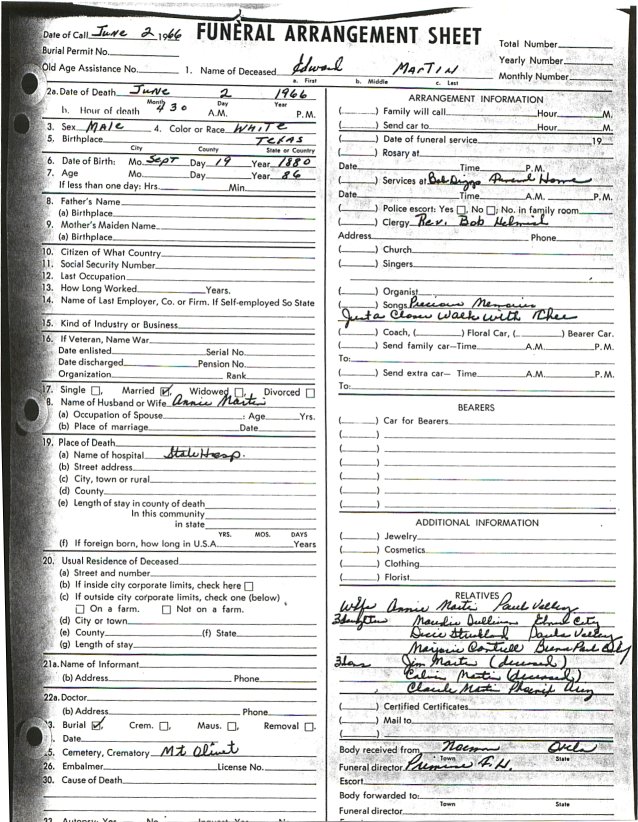 FUNERAL ARRANGEMENT SHEET
Date of Call June 2 1966
Burial Permit No.
Old Age Assistance No.
1. Name of Deceased Edward Martin
a. First b. Middle c. Last
Total Number
Yearly Number
Monthly Number
2a. Date of Death June 2 1966
Month Day Year
b. Hour of death 430 A.M. P.M.
3. Sex MALE 4. Color or Race WHITE
5. Birthplace TEXAS
City County State or Country
6. Date of Birth: Mo. Sept Day 19 Year 1880
7. Age Mo. Day Year 86
If less than one day: Hrs. Min.
8. Father's Name
(a) Birthplace
9. Mother's Maiden Name
(a) Birthplace
10. Citizen of What Country
11. Social Security Number
12. Last Occupation
13. How Long Worked Years.
14. Name of Last Employer, Co. or Firm. If Self-employed So State
15. Kind of Industry or Business
16. If Veteran, Name War
Date enlisted Serial No.
Date discharged Pension No.
Organization Rank
17. Single Married Widowed Divorced
8. Name of Husband or Wife Annie Martin
(a) Occupation of Spouse : Age Yrs.
(b) Place of marriage Date
19. Place of Death
(a) Name of hospital State Hosp.
(b) Street address
(c) City, town or rural
(d) County
(e) Length of stay in county of death
In this community
in state
YRS. MOS. DAYS
(f) If foreign born, how long in U.S.A. Years
20. Usual Residence of Deceased
(a) Street and number
(b) If inside city corporate limits, check here
(c) If outside city corporate limits, check one (below)
On a farm. Not on a farm.
(d) City or town
(e) County (f) State
(g) Length of stay
21a. Name of Informant
(b) Address Phone
22a. Doctor
(b) Address Phone
3. Burial Crem. Maus. Removal
Date
5. Cemetery, Crematory Mt Olivet
26. Embalmer License No.
30. Cause of Death
ARRANGEMENT INFORMATION
( ) Family will call Hour M.
( ) Send car to Hour M.
( ) Date of funeral service 19
( ) Rosary at
Date Time P.M.
( ) Services at Bob Funeral Home
Date Time A.M. P.M.
( ) Police escort: Yes , No ; No. in family room
( ) Clergy Rev. Bob
Address Phone
( ) Church
( ) Singers
( ) Organist
( ) Songs Precious Memories
Just a Closer Walk with Thee
( ) Coach, ( ) Floral Car, ( ) Bearer Car.
( ) Send family car—Time A.M. P.M.
To:
( ) Send extra car— Time A.M. P.M.
To:
BEARERS
( ) Car for Bearers
( )
( )
( )
( )
( )
( )
ADDITIONAL INFORMATION
( ) Jewelry
( ) Cosmetics
( ) Clothing
( ) Florist
RELATIVES
Wife Annie Martin Pauls Valley
3 daughters Maudie City
Pauls Valley
Marjorie Cantrell
3 sons Jim Martin (deceased)
Calvin Martin (deceased)
Claude Martin Phoenix Ariz
( ) Certified Certificates
( ) Mail to
( )
Body received from Norman Okla
Town State
Funeral director F.H.
Escort
Body forwarded to:
Town State
Funeral director